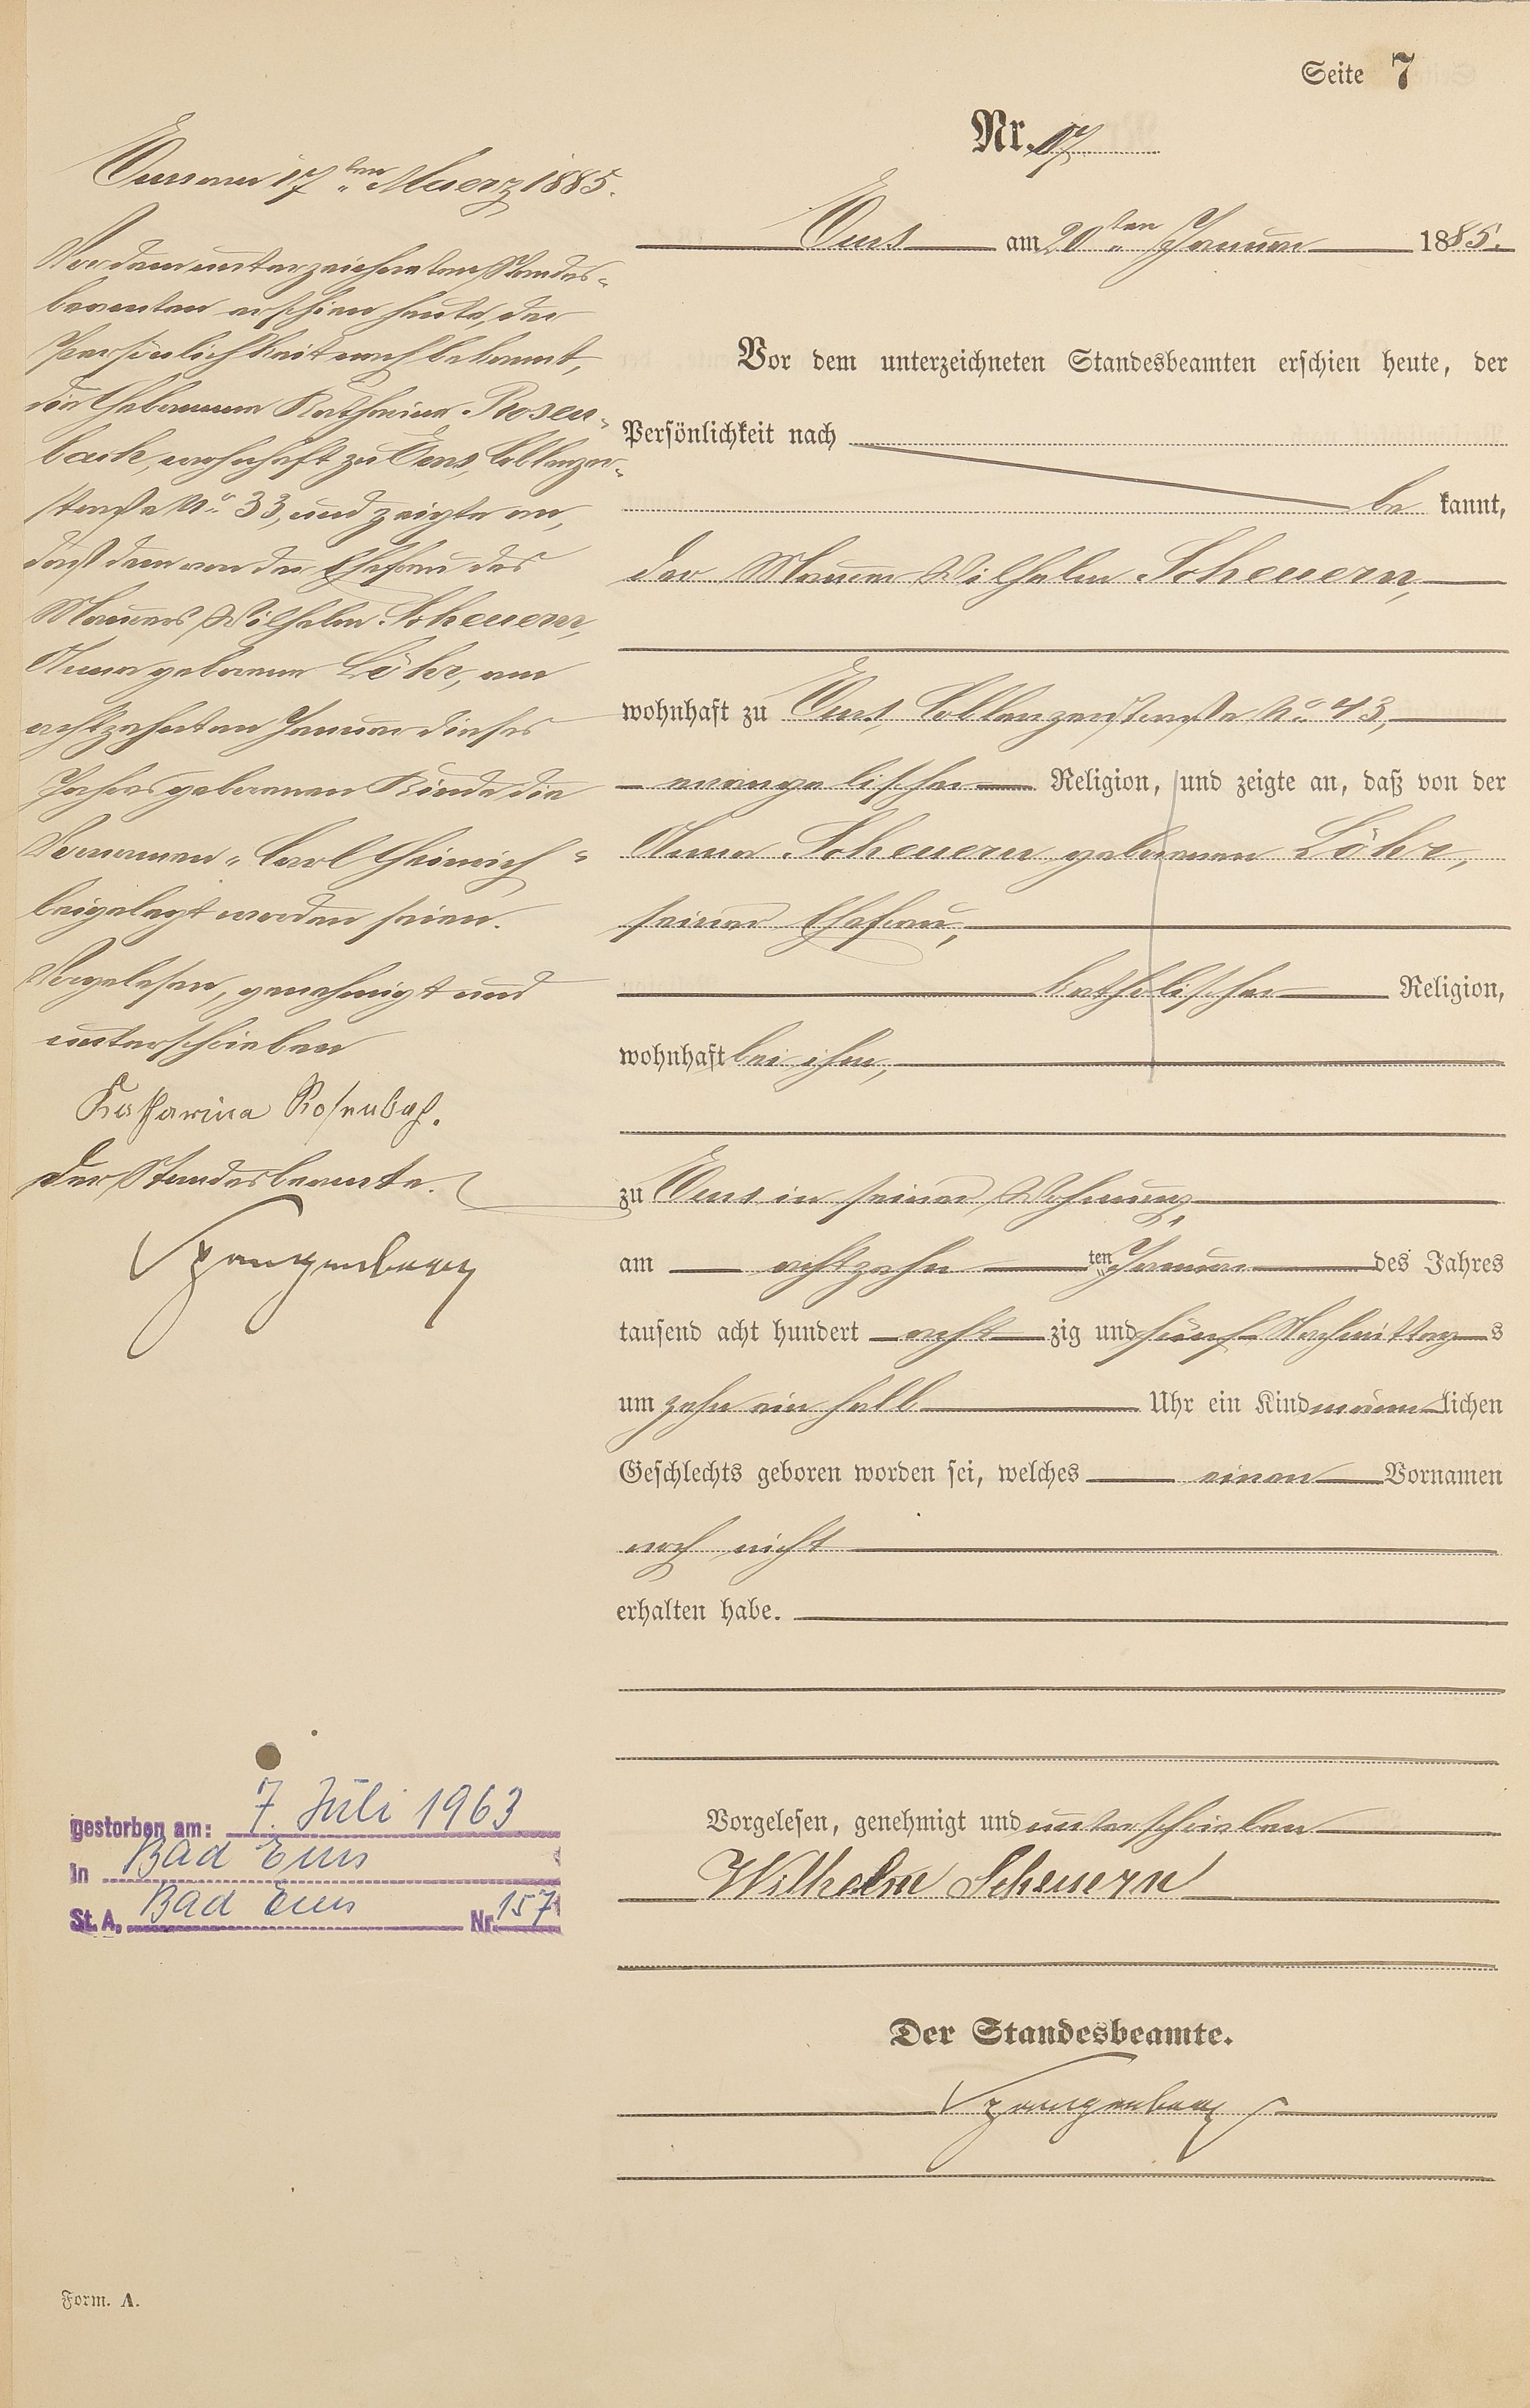 Seite 7
Nr. 17
Ems am 20ten Januar 1885.
Vor dem unterzeichneten Standesbeamten erschien heute, der
Persönlichkeit nach
be kannt,
der Maurer Wilhelm Scheuern,
wohnhaft zu Ems, Coblenzerstraße No 43,
evangelischer Religion, und zeigte an, daß von der
Anna Scheuern geborenen Löhr,
seiner Ehefrau,
katholischer Religion,
wohnhaft bei ihm,
zu Ems in seiner Wohnung
am achtzehn ten Januar des Jahres
tausend acht hundert acht zig und fünf Nachmittag s
um zehn ein halb Uhr ein Kind männ lichen
Geschlechts geboren worden sei, welches einen Vornamen
noch nicht
erhalten habe.
Vorgelesen, genehmigt und unterschrieben
Wilhelm Scheuern
Der Standesbeamte.
Spangenberg
Ems am 17ten Maerz 1885.
Vor dem unterzeichneten Standes-
beamten erschien heute, der
Persönlichkeit nach bekannt,
die Hebamme Katharina Rosen-
bach, wohnhaft zu Ems, Coblenzer-
straße No 33, und zeigte an,
daß dem von der Ehefrau des
Maurers Wilhelm Scheuern,
Anna geborene Löhr, am
achtzehnten Januar dieses
Jahres geborenen Kinde die
Vornamen „Carl Heinrich"
beigelegt worden seien.
Vorgelesen, genehmigt und
unterschrieben
Katharina Rosenbach.
Der Standesbeamte.
Spangenberg
gestorben am: 7. Juli 1963
in Bad Ems
St. A. Bad Ems Nr. 157
Form. A.